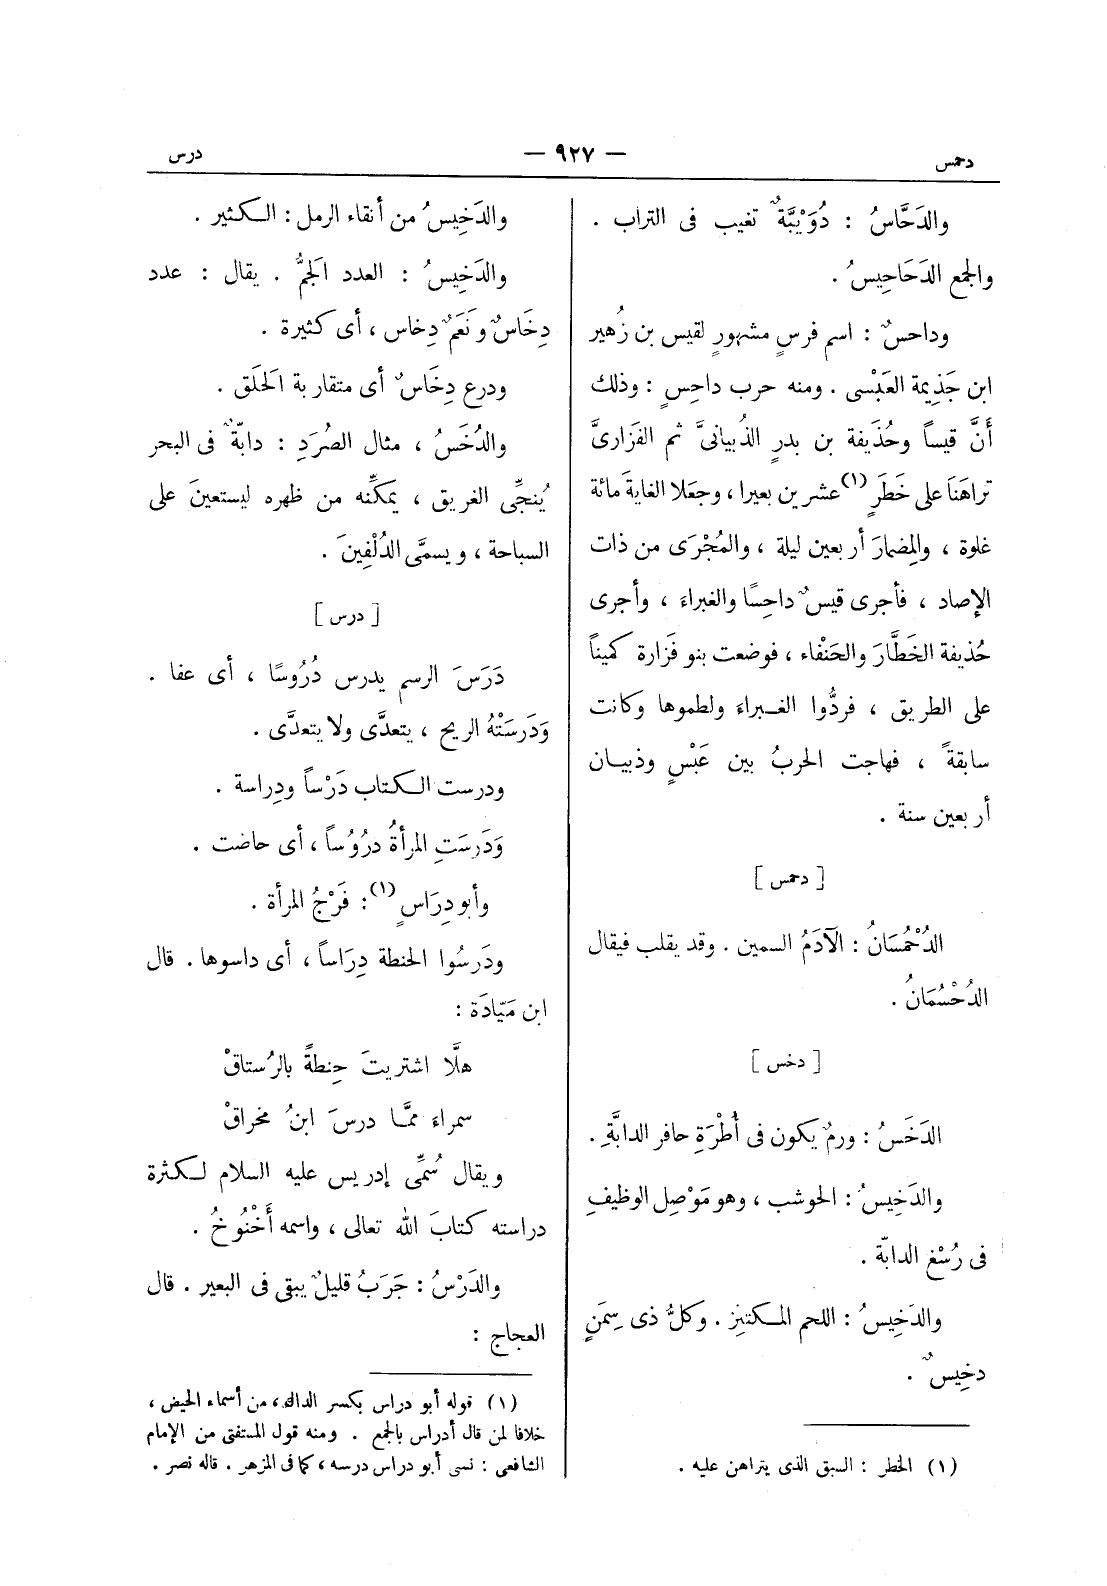 دحس
— ٩٢٧ —
درس
والدَحَّاسُ : دُوَيْبَّةٌ تغيب فى التراب .
والجمع الدَحَاحِيسُ .
وداحسٌ : اسم فرسٍ مشهورٍ لقيس بن زُهير
ابن جَذِيمة العَبْسى . ومنه حرب داحِسٍ : وذلك
أَنَّ قيساً وحُذَيفة بن بدرٍ الذُبيانىَّ ثم الفَزارىَّ
تراهَنَا على خَطَرٍ (١) عشرين بعيرا ، وجعلا الغايةَ مائة
غلوة ، والمِضمارَ أربعين ليلة ، والمُجْرَى من ذات
الإصاد ، فأجرى قيسٌ داحِسًا والغبراءَ ، وأجرى
حُذيفة الخَطَّارَ والحَنْفاء ، فوضعت بنو فَزارة كميناً
على الطريق ، فردُّوا الغبراءَ ولطموها وكانت
سابقةً ، فهاجت الحربُ بين عَبْسٍ وذبيان
أربعين سنة .
[ دحمس ]
الدُحْمُسَانُ : الآدَمُ السمين . وقد يقلب فيقال
الدُحْسُمَانُ .
[ دخس ]
الدَخَسُ : ورمٌ يكون فى أُطْرَةِ حافر الدابَّةِ .
والدَخِيسُ : الحوشب ، وهو مَوْصِل الوظيفِ
فى رُسْغ الدابّة .
والدَخِيسُ : اللحم المكتنِز . وكلُّ ذى سِمَنٍ
دخِيسٌ .
(١) الخطر : السبق الذى يتراهن عليه .
والدَخِيسُ من أنقاء الرمل : الكثير .
والدَخِيسُ : العدد الجَمُّ . يقال : عدد
دِخَاسٌ ونَعَمٌ دِخاس ، أى كثيرة .
ودرع دِخَاسٌ أى متقاربة الحَلَق .
والدُخَسُ ، مثال الصُرَدِ : دابّةٌ فى البحر
يُنجِّى الغريق ، يمكِّنه من ظهره ليستعينَ على
السباحة ، ويسمَّى الدُلْفِينَ .
[ درس ]
دَرَسَ الرسم يدرس دُرُوسًا ، أى عفا .
وَدَرَسَتْهُ الريح ، يتعدَّى ولا يتعدَّى .
ودرست الكتاب دَرْساً ودِراسة .
وَدَرَسَتِ المرأةُ درُوُساً ، أى حاضت .
وأبو دِرَاسٍ (١) : فَرْجُ المرأة .
ودَرسُوا الحنطة دِرَاساً ، أى داسوها . قال
ابن مَيّادَة :
هلَّا اشتريتَ حِنطةً بالرُستاقْ
سمراء ممَّا درسَ ابنُ مخراقْ
ويقال سُمِّى إدريس عليه السلام لكثرة
دراسته كتابَ الله تعالى ، واسمه أَخْنُوخُ .
والدَرْسُ : جَرَبُ قليلٌ يبقى فى البعير . قال
العجاج :
(١) قوله أبو دراس بكسر الدال ، من أسماء الحيض ،
خلافا لمن قال أدراس بالجمع . ومنه قول المستفتى من الإمام
الشافعى : نسى أبو دراس درسه ، كما فى المزهر . قاله نصر .